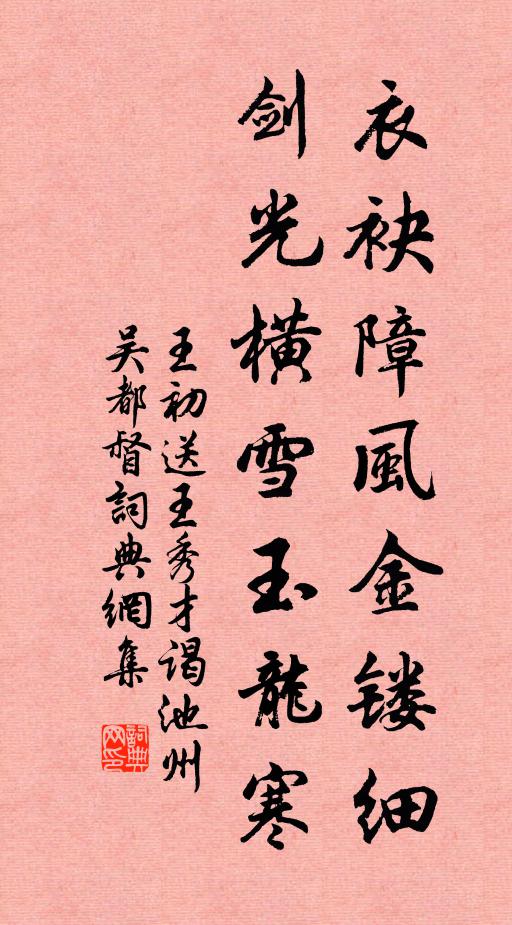 衣袂障風金镂細
剑光横雪玉龍寒
王初送王秀才谒池州
吴都督詞典網集
詞典
网印